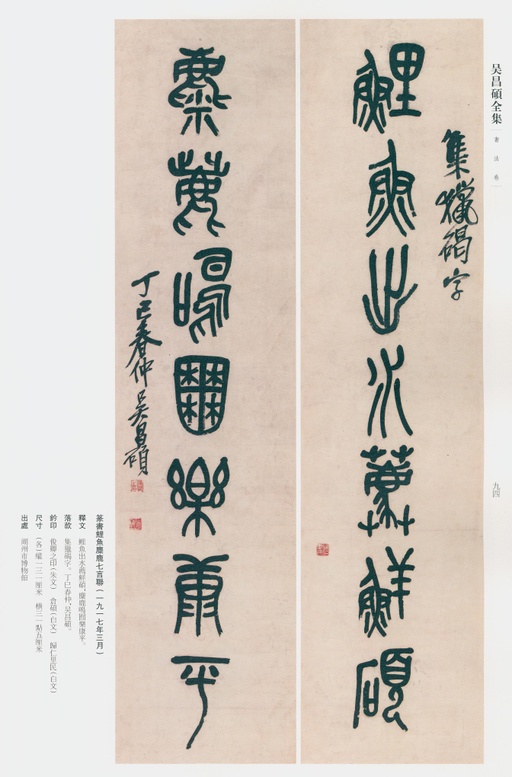 吴昌碩全集
書法卷
九四
集獵碣字
鯉魚出水鮮碩
麋鹿鳴囿樂康平
丁巳春仲吴昌碩
篆書鯉魚麋鹿七言聯(一九一七年三月)
釋文 鯉魚出水鮮碩,麋鹿鳴囿樂康平。
落款 集獵碣字。丁巳春仲,吴昌碩。
鈐印 俊卿之印(朱文) 倉碩(白文) 歸仁里民(白文)
尺寸 (各)縱一三一厘米 橫三一點五厘米
出處 湖州市博物館